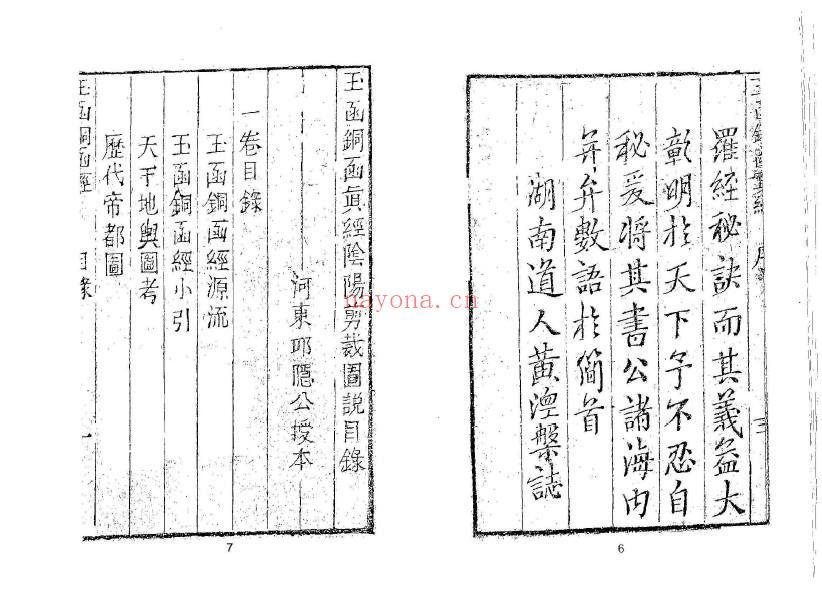 羅經秘訣而其義益大
彰明於天下予不忍自
秘爰將其書公諸海內
弁數語於簡首
湖南道人黃澄槃誌
序
三
6
玉函銅函眞經陰陽剪裁圖說目錄
河東邱隱公授本
一卷目錄
玉函銅函經源流
玉函銅函經小引
天下地輿圖考
歷代帝都圖
玉函銅函經
目錄
一
7
nayona.cn